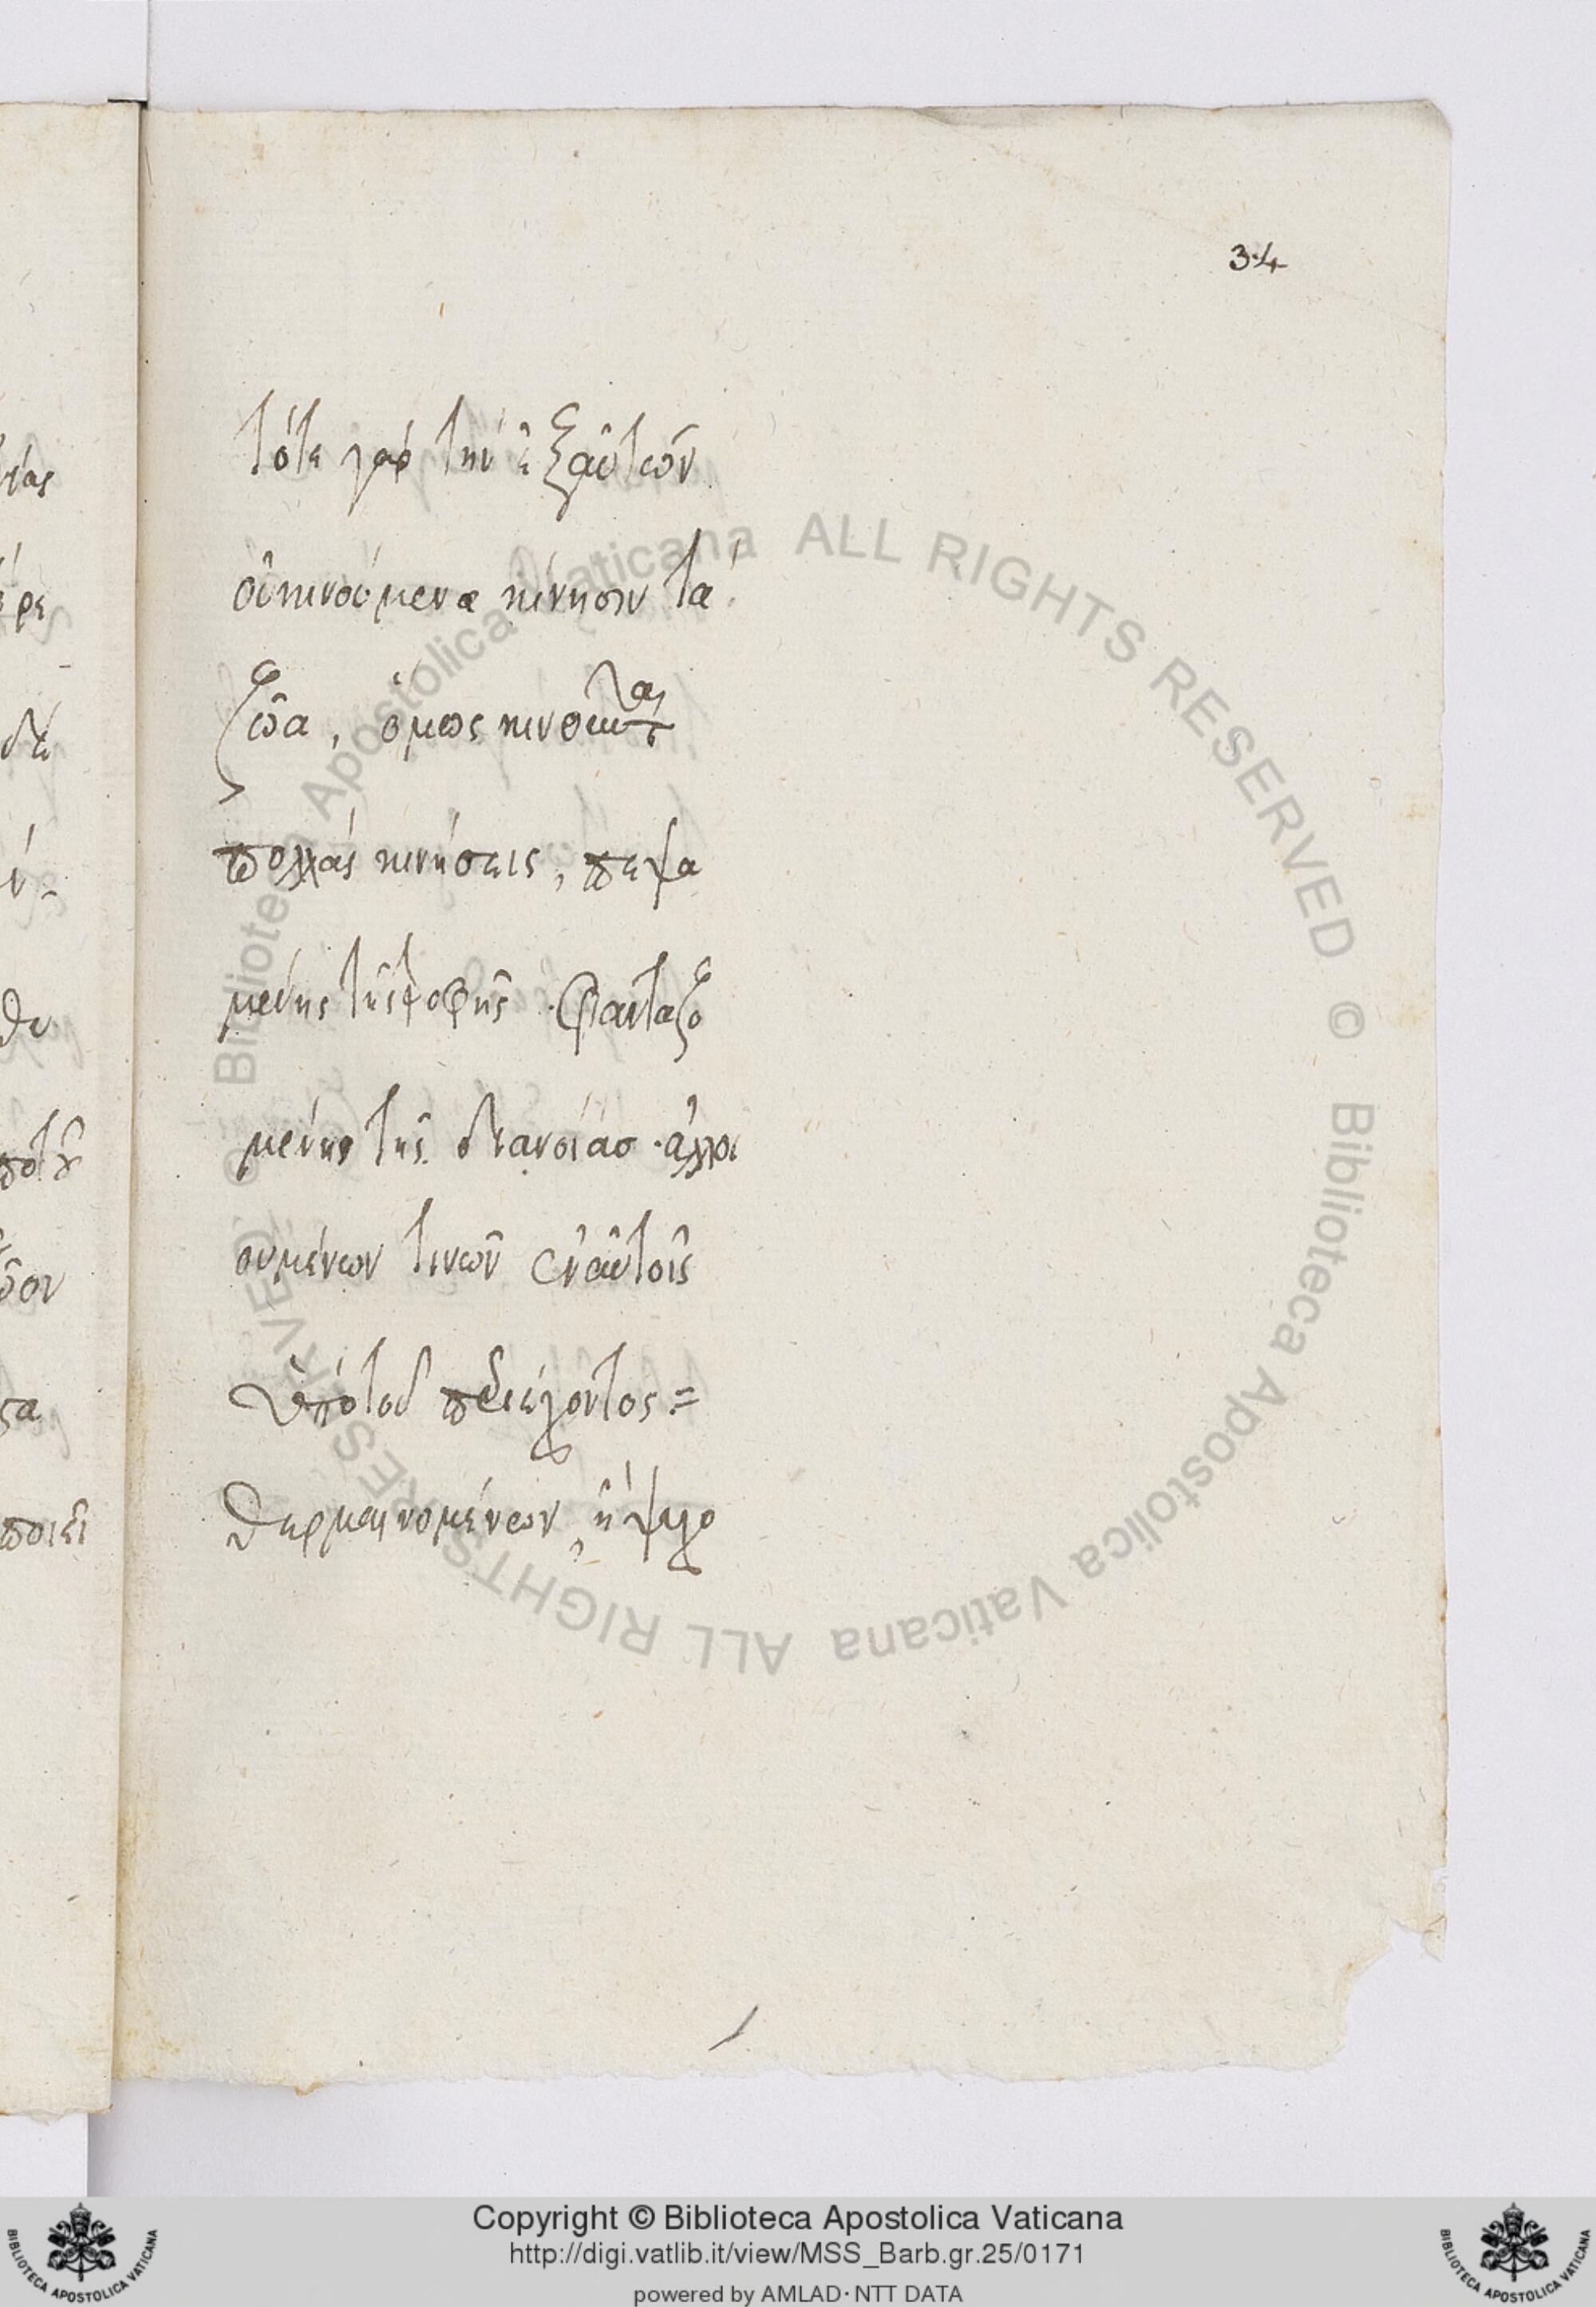 34
τότε γὰρ τὴν ἐξ αὐτῶν
οὐ κινούμενα κίνησιν τὰ
ζῶα, ὅμως κινοῦνται
πολλὰς κινήσεις, πεψα
μένης τῆς τροφῆς. φανταζο
μένης τῆς διανοίας. ἀλλοι
ουμένων τινῶν ἐν αὐτοῖς
ὑπὸ τοῦ περιέχοντος =
θερμαινομένων, ἢ ψυχο
Biblioteca Apostolica Vaticana ALL RIGHTS RESERVED ©
Biblioteca Apostolica Vaticana ALL RIGHTS RESERVED ©
Copyright © Biblioteca Apostolica Vaticana
http://digi.vatlib.it/view/MSS_Barb.gr.25/0171
powered by AMLAD·NTT DATA
BIBLIOTECA APOSTOLICA VATICANA
BIBLIOTECA APOSTOLICA VATICANA